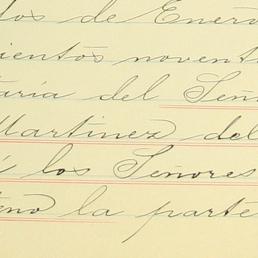 dos de Enero
cientos novent
taría del Señ
Martinez del
í los Señores
eno la parte